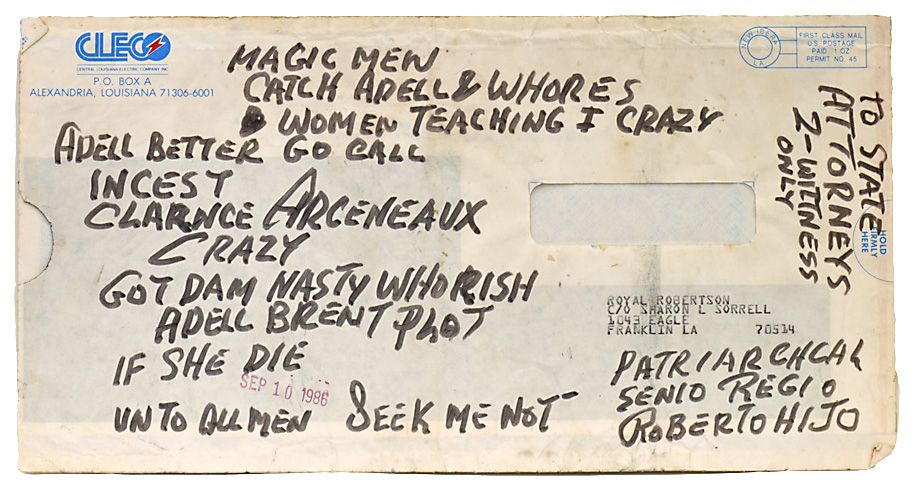 CLECO
CENTRAL LOUISIANA ELECTRIC COMPANY, INC.
P.O. BOX A
ALEXANDRIA, LOUISIANA 71306-6001
NEW IBERIA
LA
FIRST CLASS MAIL
U.S. POSTAGE
PAID 1 OZ
PERMIT NO. 45
MAGIC MEN
CATCH ADELL & WHORES
WOMEN TEACHING I CRAZY
ADELL BETTER GO CALL
INCEST
CLARNCE ARCENEAUX
CRAZY
GOT DAM NASTY WHORISH
ADELL BRENT PLOT
IF SHE DIE
SEP 10 1986
UNTO ALL MEN SEEK ME NOT
TO STATE
ATTORNEYS
2-WITTNESS
ONLY
HOLD
FIRMLY
HERE
ROYAL ROBERTSON
C/O SHARON L SORRELL
1043 EAGLE
FRANKLIN LA 70514
PATRIARCHCAL
SENIO REGIO
ROBERTO HIJO